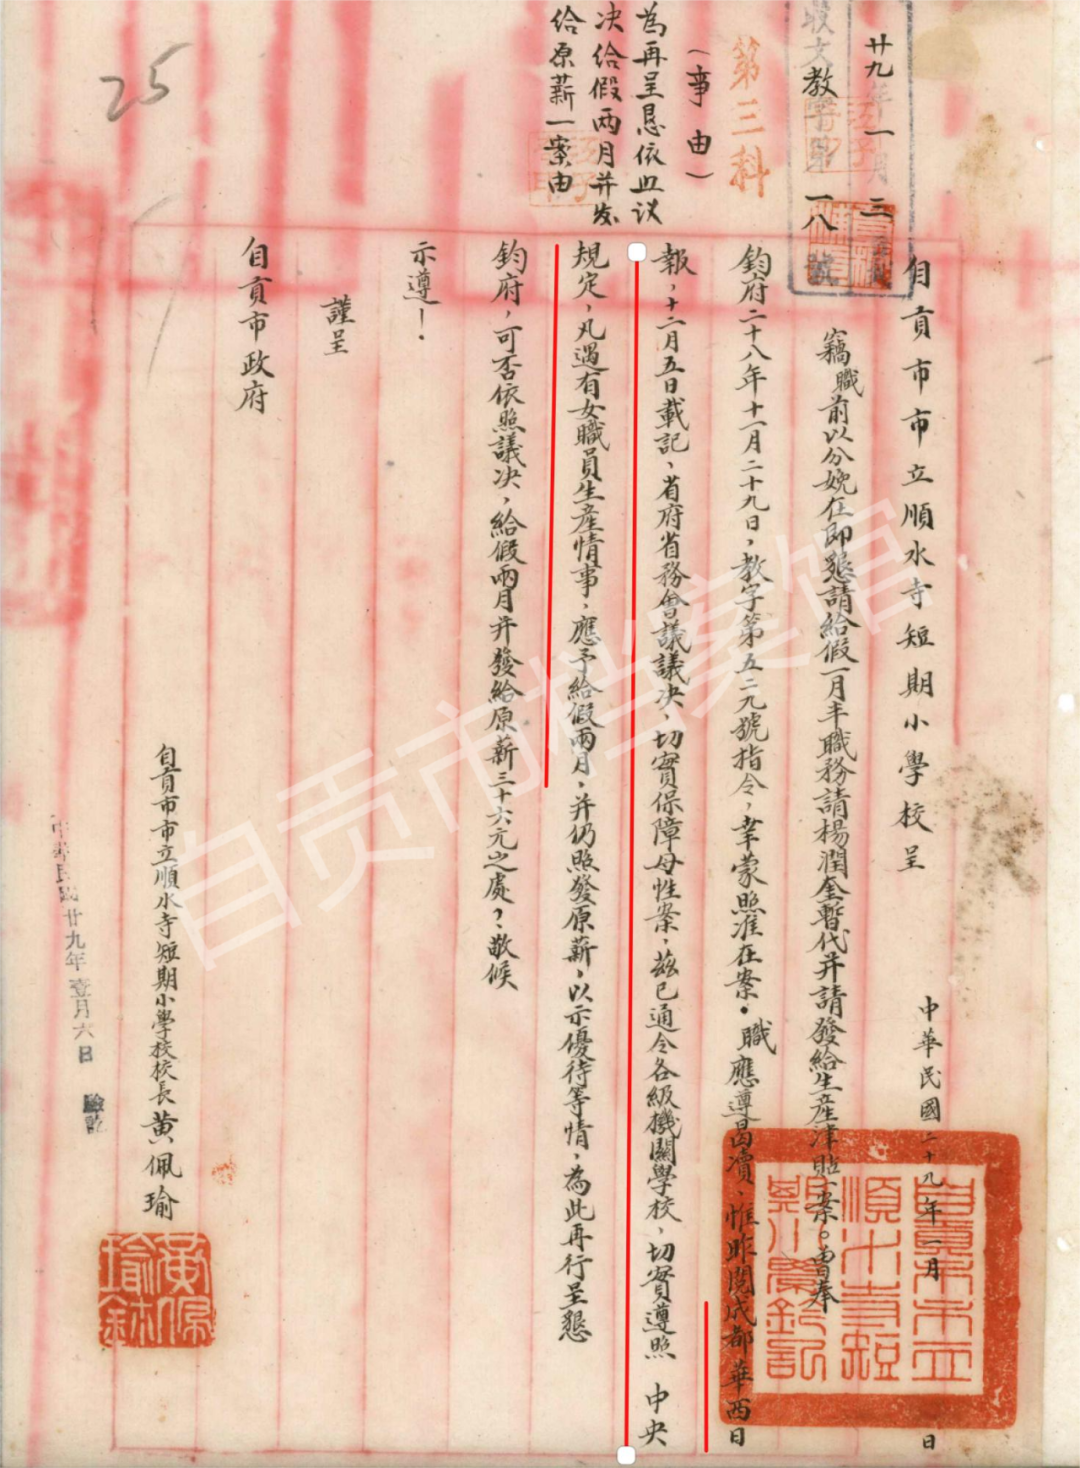 廿九年一月三
收文教字第一八號
第三科
(事由)
為再呈恳依照议
决给假两月并发
给原薪一案由
25
自貢市市立順水寺短期小學校呈
中華民國二十九年一月 日
竊職前以分娩在即懇請給假一月半職務請楊潤奎暫代并請發給生產津貼一案。曾奉
鈞府二十八年十一月二十九日,教字第五二九號指令,幸蒙照准在案。職應遵曷瀆、惟昨閱成都華西日
報,十二月五日載記、省府省務會議議决、切實保障母性案,茲已通令各級機關學校,切實遵照 中央
規定,凡遇有女職員生產情事、應予給假兩月,并仍照發原薪,以示優待等情,為此再行呈懇
鈞府,可否依照議决,給假兩月并發給原薪三十六元之處?敬候
示遵!.
謹呈
自貢市政府
自貢市市立順水寺短期小學校校長黃佩瑜
中華民國廿九年壹月六日
自貢市市立
順水寺短
期小學鈐記
黃佩
瑜鉢
自贡市档案馆